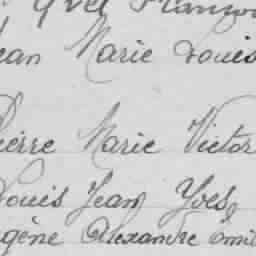 Yves François
Jean Marie Louis
Pierre Marie Victor
Louis Jean Yves
Eugène Alexandre Émile